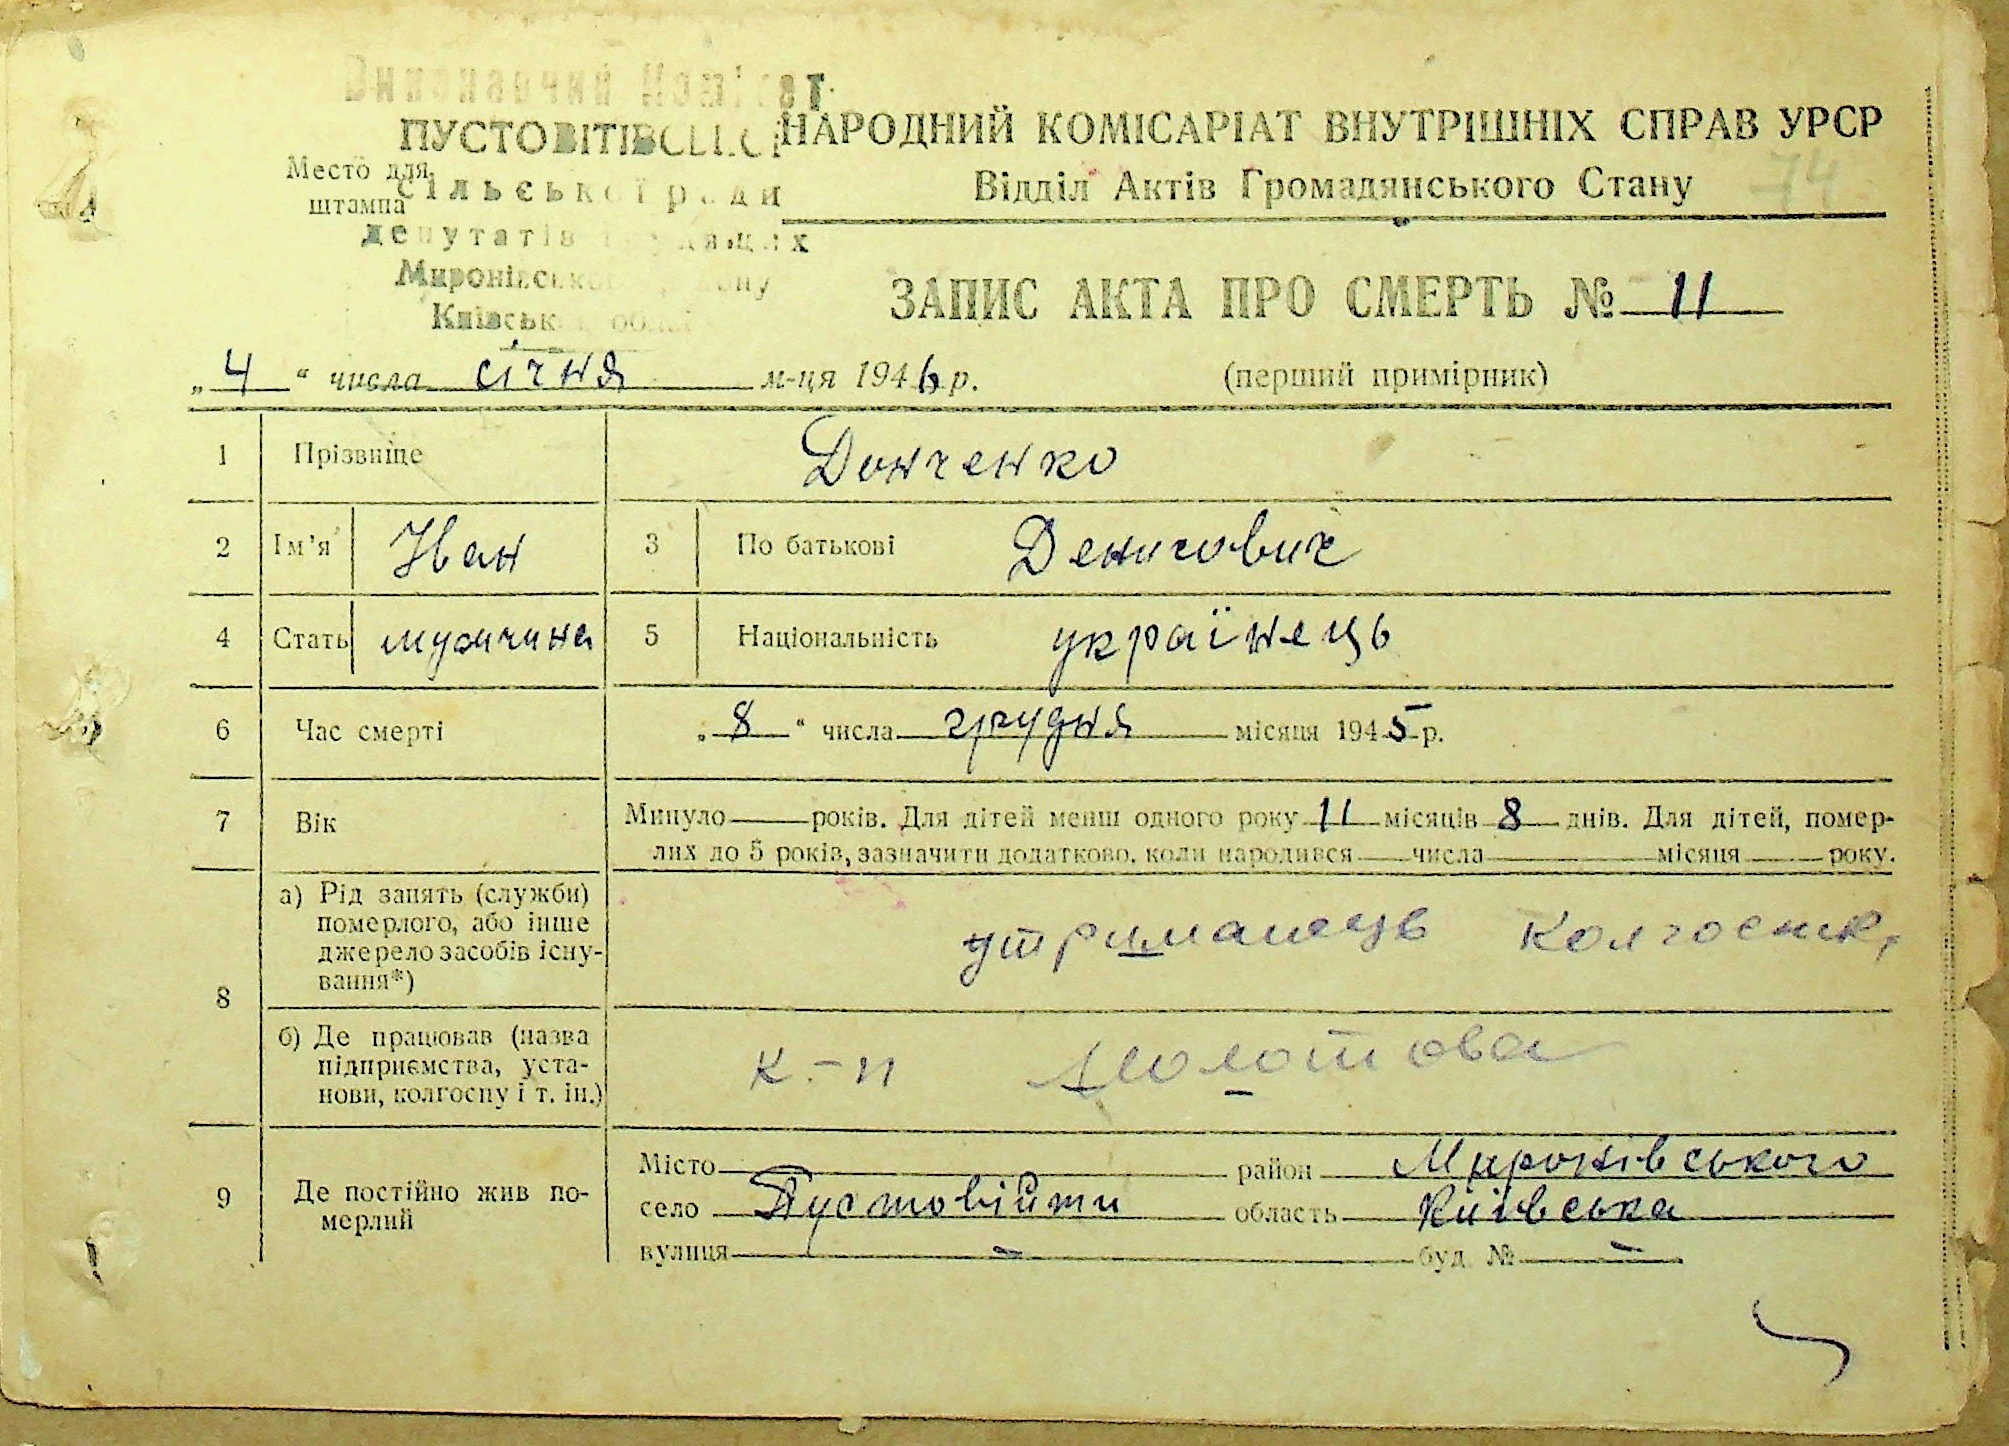 Виконавчий Комітет
ПУСТОВІТІВСЬКОЇ
НАРОДНИЙ КОМІСАРІАТ ВНУТРІШНІХ СПРАВ УРСР
Відділ Актів Громадянського Стану
74
Место для
штампа
сільської ради
депутатів трудящих
Миронівського району
Київської обл.
ЗАПИС АКТА ПРО СМЕРТЬ № 11
„4“ числа січня м-ця 1946 р. (перший примірник)
1 Прізвище Донченко
2 Ім’я Іван 3 По батькові Денисович
4 Стать мужчина 5 Національність українець
6 Час смерті „8“ числа грудня місяця 1945 р.
7 Вік Минуло — років. Для дітей менш одного року 11 місяців 8 днів. Для дітей, помер-
лих до 5 років, зазначити додатково, коли народився числа місяця року.
8 а) Рід занять (служби)
померлого, або інше
джерело засобів існу-
вання*)
утриманець колгоспник,
б) Де працював (назва
підприємства, уста-
нови, колгоспу і т. ін.)
к-п Молотова
9 Де постійно жив по-
мерлий
Місто район Миронівського
село Пустовійти область Київська
вулиця — буд. № —